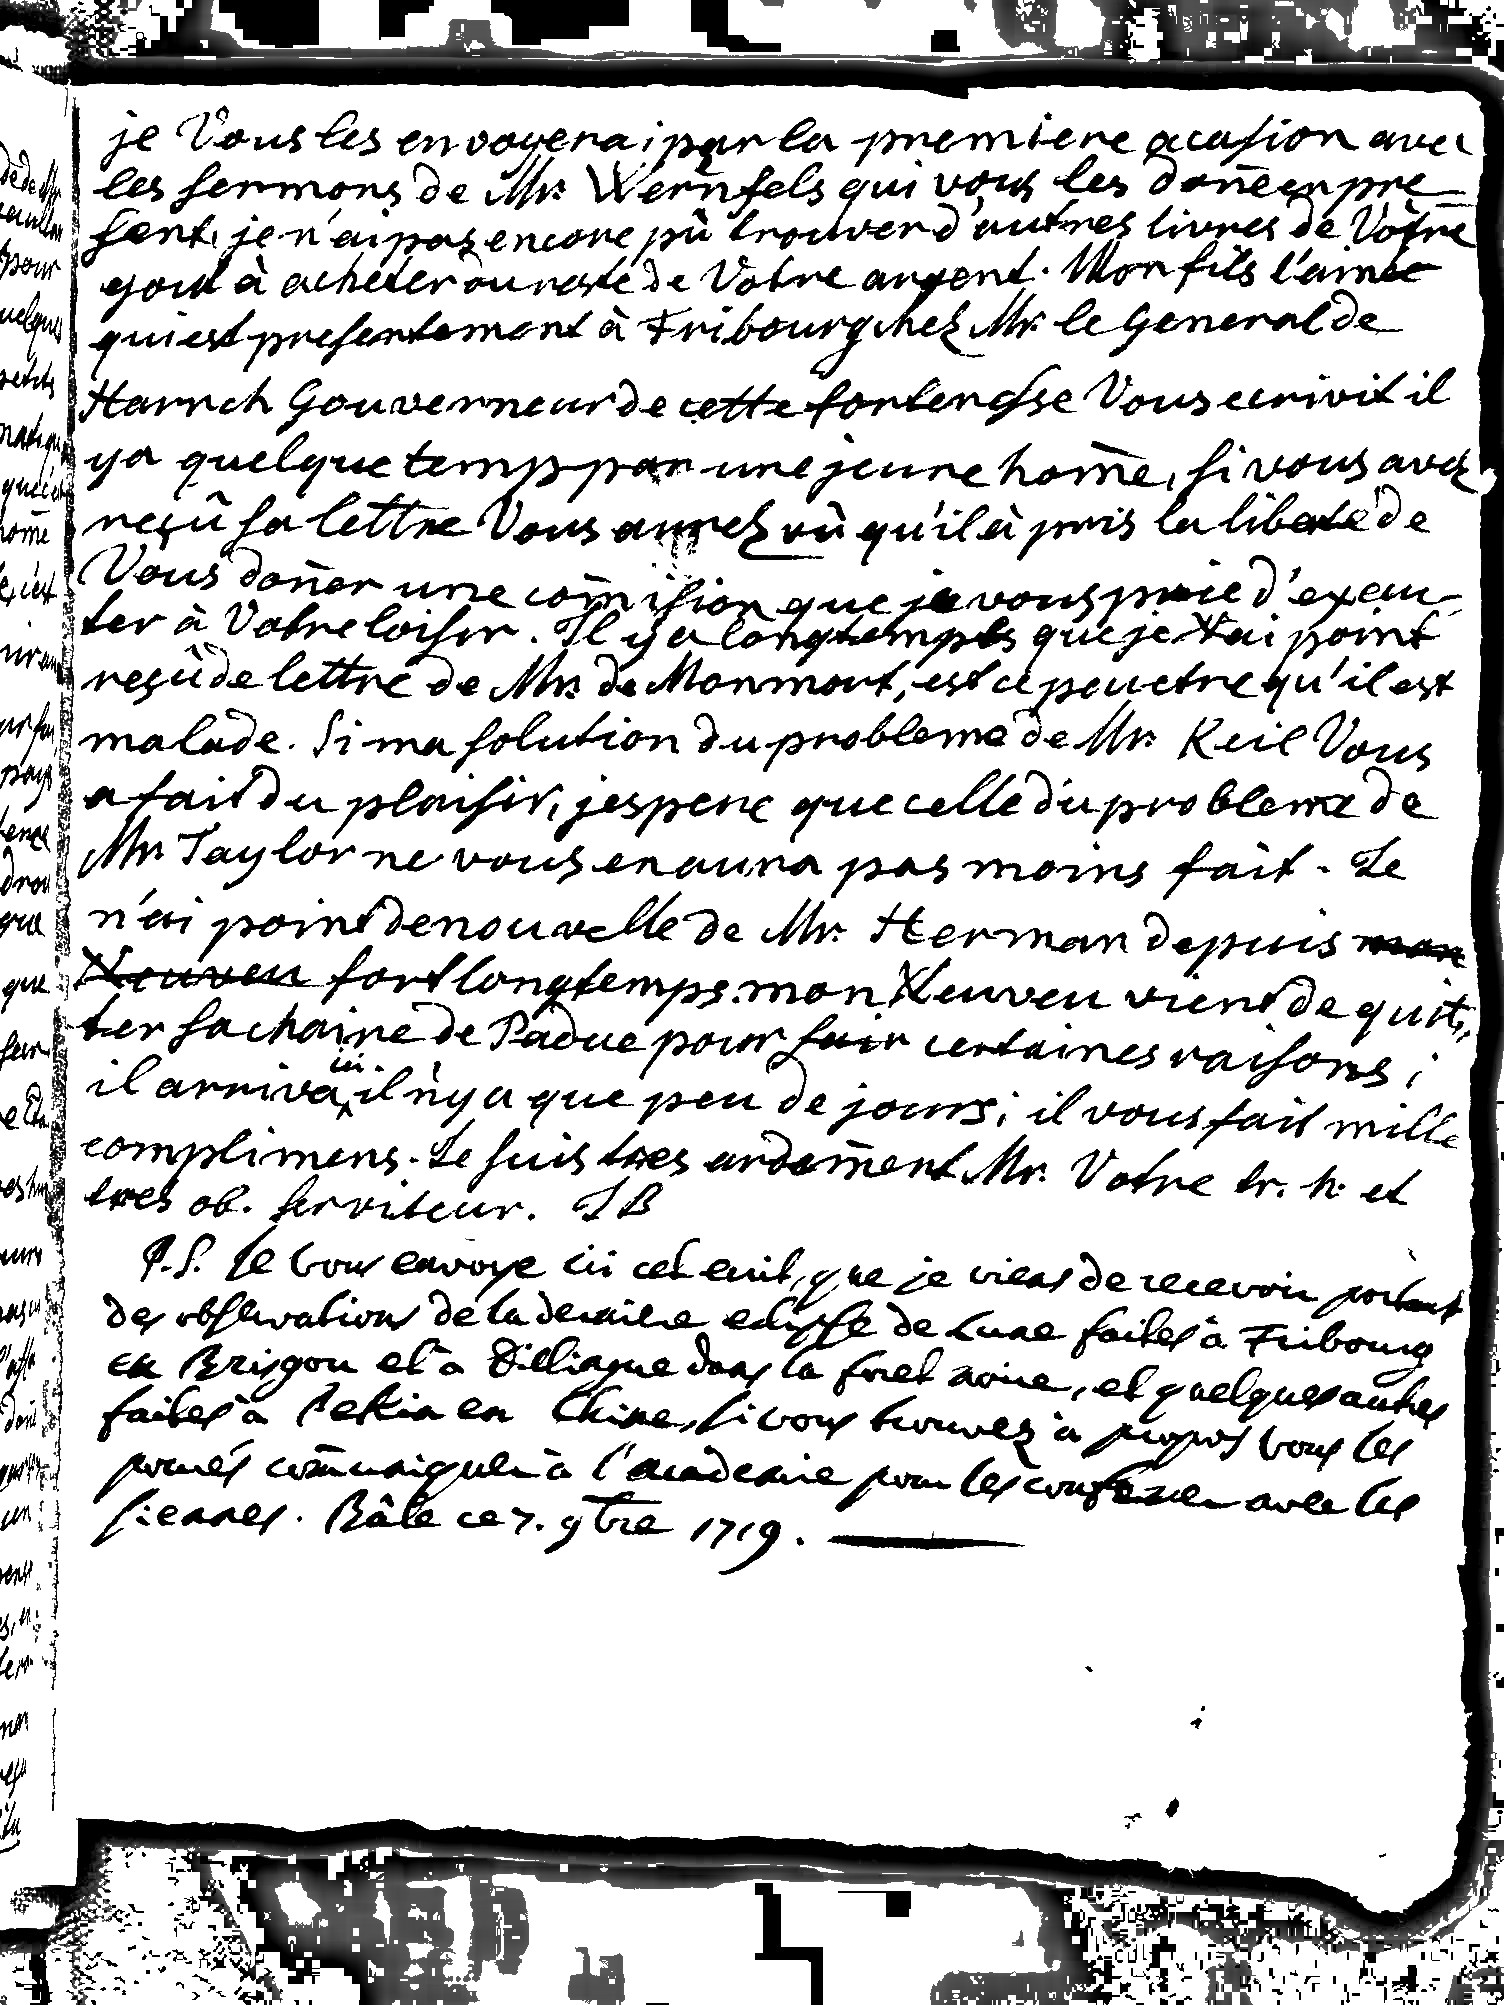 je Vous les envoyerai par la premiere ocasion avec
les sermons de Mr. Werenfels qui vous les done en pre
sent, je n'ai pas encore pû trouver d'autres livres de Vôtre
gout à acheter du reste de Votre argent. Mon fils l'ainé
qui est presentement à Fribourg chez Mr. le General de
Harrch Gouverneur de cette forteresse Vous ecrivit il
ya quelque temp par une jeune hom̄e, si vous avez
reçû sa lettre Vous aurez vû qu'il à pris la liberté de
Vous don̄er une com̄ission que je vous prie d'execu-
ter à Votre loisir. Il y a longtemps que je n'ai point
reçû de lettre de Mr. de Monmort, est ce peuetre qu'il est
malade. Si ma solution du probleme de Mr. Keil Vous
a fait du plaisir, jespere que celle du probleme de
Mr. Taylor ne vous en aura pas moins fait. Je
n'ai point de nouvelle de Mr. Herman depuis mon
Neuveu fort longtemps. mon Neuveu vient de quit,,
ter sa chaire de Padue pour certaines raisons;
il arriva ici il n'y a que peu de jours; il vous fait mille
complimens. Je suis tres ardem̄ent Mr. Votre tr. h. et
tres ob. serviteur. JB
P.S. Je vous envoye ici cet ecrit, que je viens de recevoir portant
des observations de la derniere eclypse de Lune faites à Fribourg
en Brisgou et à Dillingue dans la foret noire, et quelques autres
faites à Pekin en Chine, si vous trouvez à propos vous les
pourés com̄uniquer à l'academie pour les conferer avec les
siennes. Bâle ce 7. 9bre 1719.